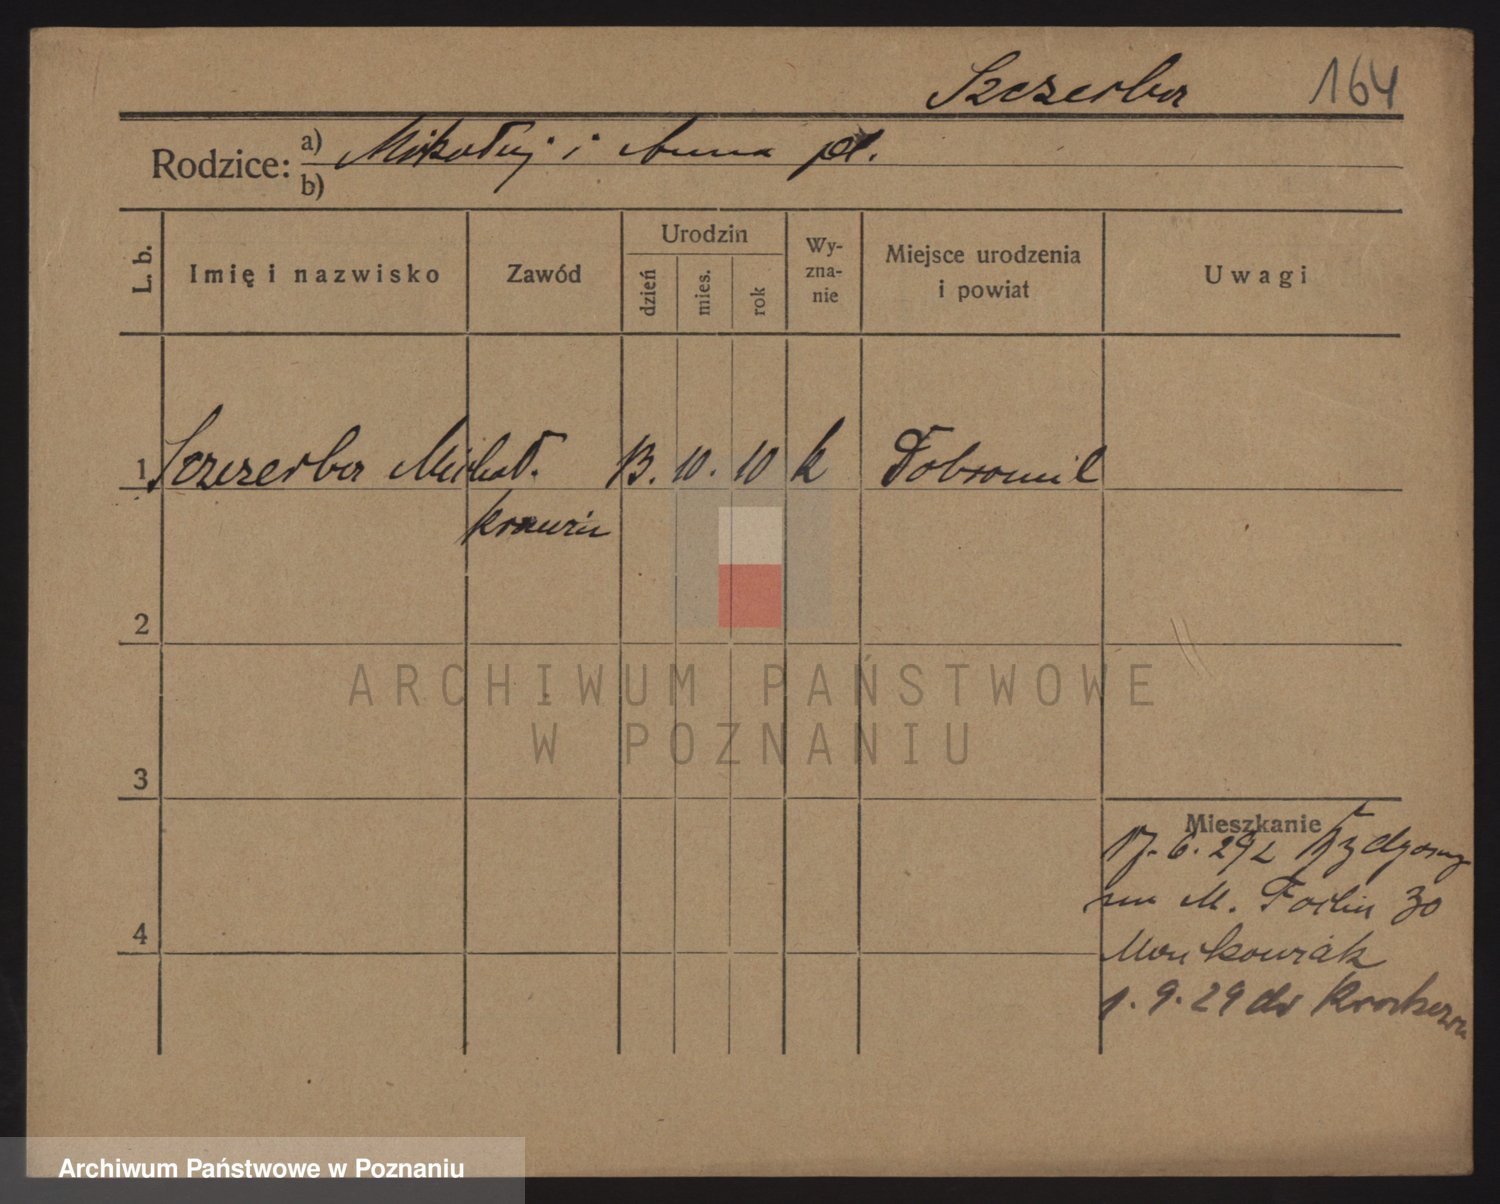 Szczerba 164
Rodzice: a) Mikołaj i Anna
b)
L. b. Imię i nazwisko Zawód Urodzin dzień mies. rok Wy-zna-nie Miejsce urodzenia i powiat Uwagi
1 Szczerba Michał. 13. 10. 10 k Dobromil
krawiec
2
ARCHIWUM PAŃSTWOWE
W POZNANIU
3
Mieszkanie
17. 6. 29 z Bydgoszcz
M. 30
4
1. 9. 29 do Krakowa
Archiwum Państwowe w Poznaniu